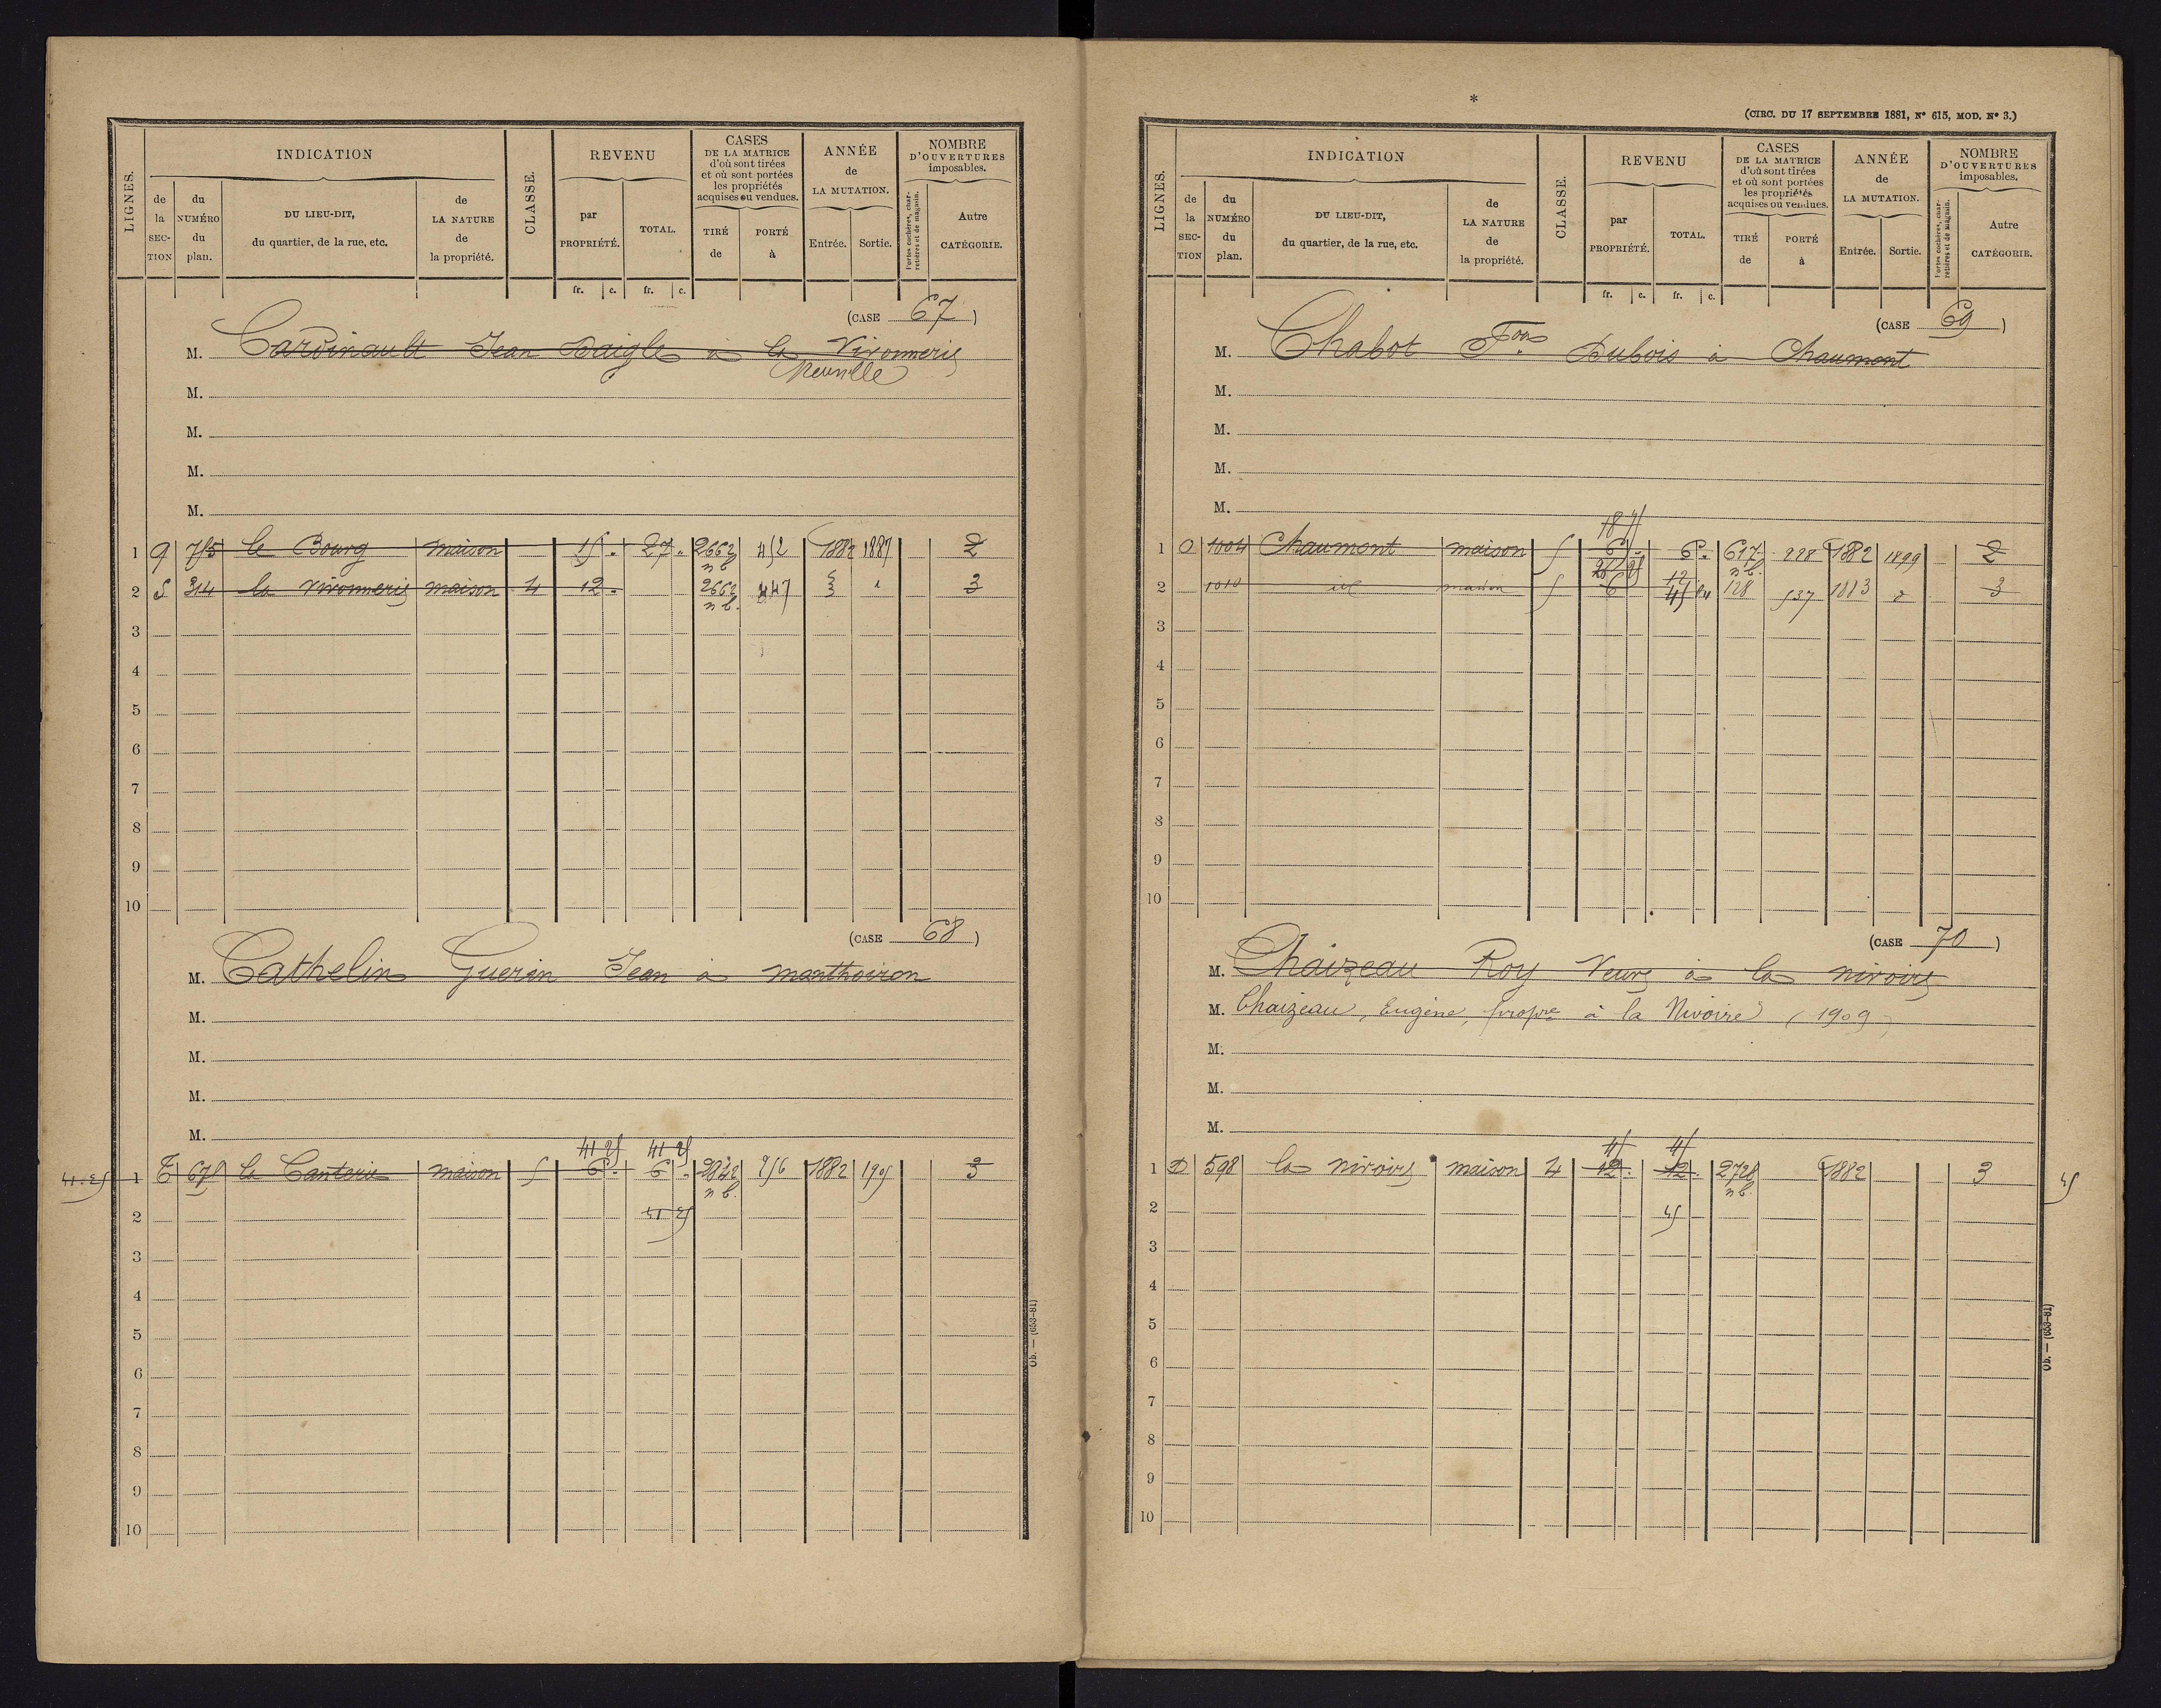 LIGNES.
INDICATION
de la SECTION
du NUMÉRO du plan.
DU LIEU-DIT, du quartier, de la rue, etc.
de LA NATURE de la propriété.
CLASSE.
REVENU
par PROPRIÉTÉ.
TOTAL.
CASES DE LA MATRICE d'où sont tirées et où sont portées les propriétés acquises ou vendues.
TIRÉ de
PORTÉ à
ANNÉE de LA MUTATION.
Entrée.
Sortie.
NOMBRE D'OUVERTURES imposables.
Portes cochères, charretières et de magasin.
Autre CATÉGORIE.
fr. c. fr. c.
(CASE 67)
M. Cardinault Jean Daigle à la Vironnerie
Neuville
M.
M.
M.
M.
1 9 715 le Bourg maison 15 . 27 . 2662 452 1882 1887 2
n b
2 S 314 la Vironnerie maison 4 12 . 2662 447 3
n b.
3
4
5
6
7
8
9
10
(CASE 68)
M. Cathelin Guerin Jean à marthoiron
M.
M.
M.
M.
41 25 41 25
41.25 1 E 675 la Canterie maison 5 6 . 6 . 2842 256 1882 1905 3
n b.
2 41 25
3
4
5
6
7
8
9
10
Ob. — (653-81)
*
(CIRC. DU 17 SEPTEMBRE 1881, N° 615, MOD. N° 3.)
LIGNES.
INDICATION
de la SECTION
du NUMÉRO du plan.
DU LIEU-DIT, du quartier, de la rue, etc.
de LA NATURE de la propriété.
CLASSE.
REVENU
par PROPRIÉTÉ.
TOTAL.
CASES DE LA MATRICE d'où sont tirées et où sont portées les propriétés acquises ou vendues.
TIRÉ de
PORTÉ à
ANNÉE de LA MUTATION.
Entrée.
Sortie.
NOMBRE D'OUVERTURES imposables.
Portes cochères, charretières et de magasin.
Autre CATÉGORIE.
fr. c. fr. c.
(CASE 69)
M. Chabot Fois Dubois à Chaumont
M.
M.
M.
M.
1 O 1004 Chaumont maison 5 6 . 6 . 617 228 1882 1899 2
n b.
2 1010 id maison 5 6 12 128 537 1883 3
3
4
5
6
7
8
9
10
(CASE 70)
M. Chaizeau Roy Veuve à la nivoire
M. Chaizeau, Eugène, propre à la Nivoire (1909)
M.
M.
M.
45 45
1 D 598 la nivoire maison 4 12 . 12 . 2728 1882 3 45
n b.
2 45
3
4
5
6
7
8
9
10
Ob. — (653-81)